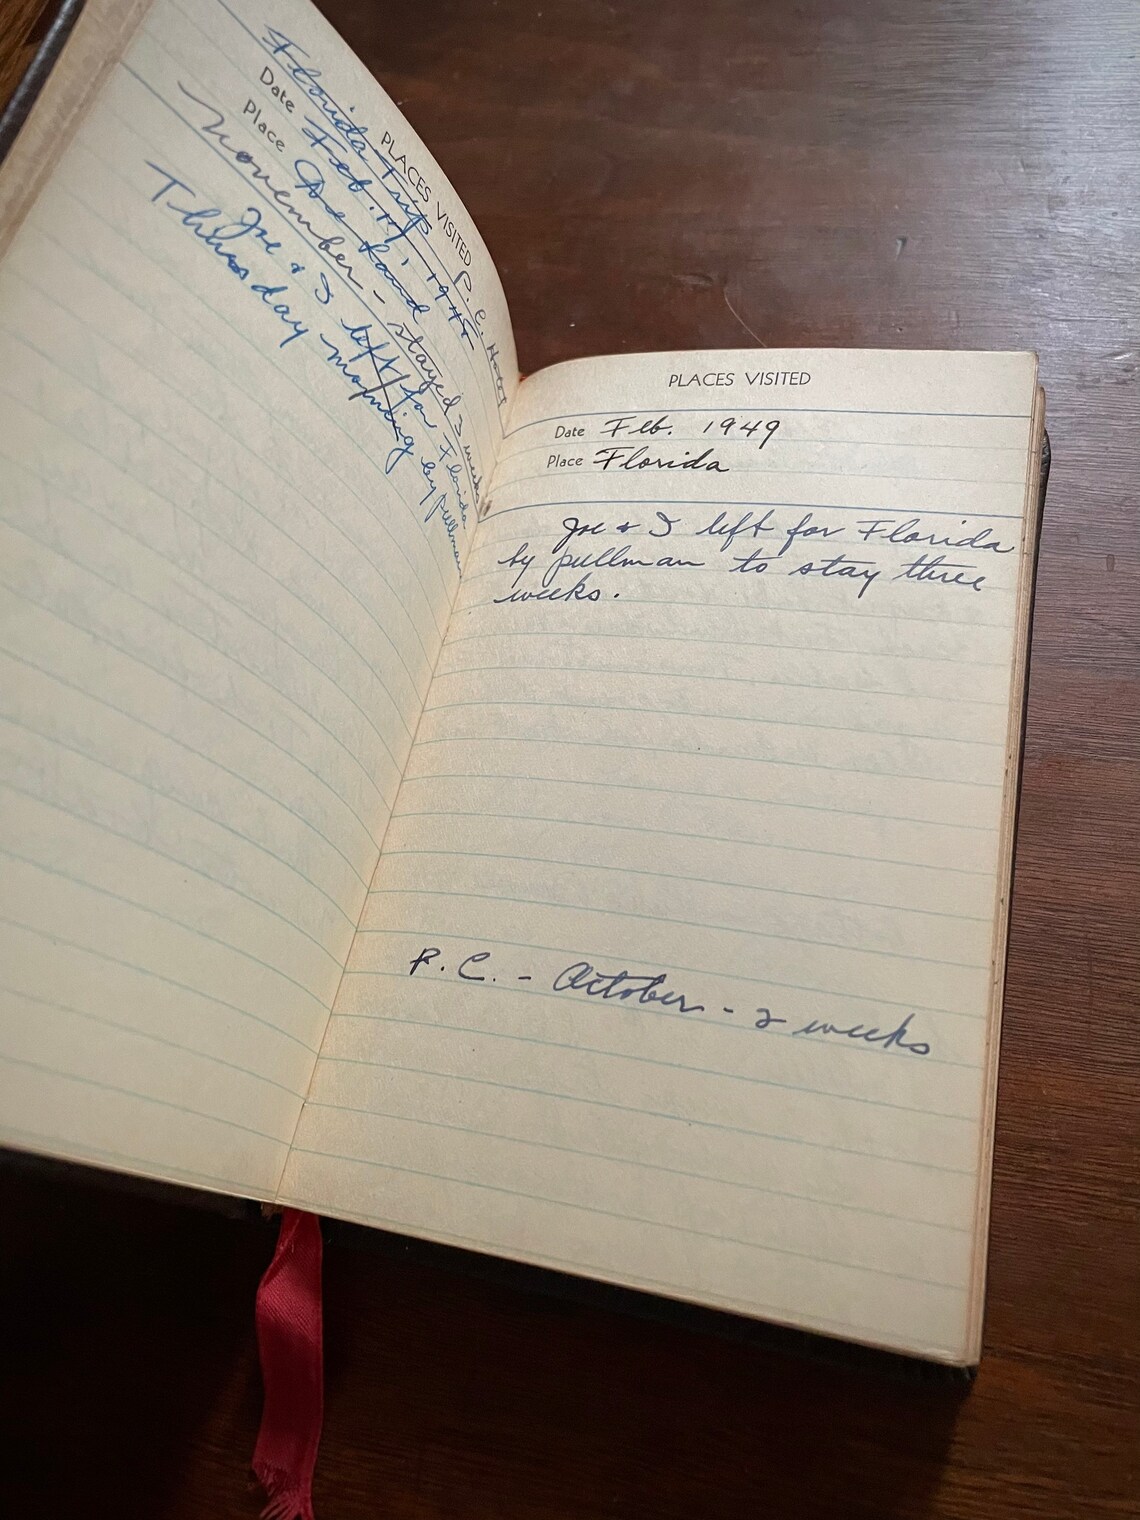 Florida Trip
PLACES VISITED
Date Feb. 1945
Place land P. C. Hotel
November - stayed 3 weeks
Joe & I left for Florida
Thursday morning by pullman
PLACES VISITED
Date Feb. 1949
Place Florida
Joe & I left for Florida
by pullman to stay three
weeks.
P. C. - October - 2 weeks